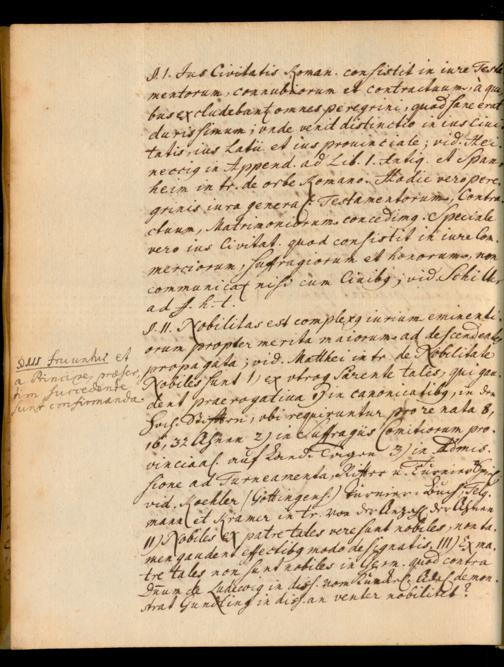 §. 1. Jus Civitatis Roman. consistit in iure Testa
mentorum, connubiorum et contractuum, à qui
bus excludebant omnes peregrini, quod sane erat
durissimum; unde venit distinctio in ius Civi
tatis, ius Latii et ius provinciale; vid. Hei-
neccig in Append. ad Lib. 1. Antiq. et Span
heim in tr. de orbe Romano. Hodie vero pere
grinis iura generalia Testamentorum, Contra
ctuum, Matrimoniorum concedimg. Speciale
vero ius Civitat. quod consistit in iure Com
merciorum, suffragiorum et honorum, non
communicat nisi cum Civibg; vid. Schilter
ad h. t.
§. II. Nobilitas est complexg iurium eminenti
orum propter merita maiorum ad descendentes
propagata; vid. Matthei in tr. de Nobilitate
Nobiles sunt 1, ex utrog parente tales, qui gau
dent praerogativa 1) in canonicatibg, in den
Stifftern, ubi requiruntur pro re nata 8,
16, 32 Ahnen 2) in suffragiis Comitiorum pro-
vincial. auf Land-Tagen 3) in Admis-
sione ad Turneamenta, Ritter u.
vid. Koehler (Göttingens.) Turnier-Buch,
mann et Kramer in tr. von der der Ahnen
II) Nobiles ex patre tales vere sunt nobiles, non ta-
men gaudent effectibg modo designatis, III) Ex ma
tre tales non sunt nobiles in Germ. quod contra
Dnum de Ludewig in diss. vom demon
strat Gundling in diss. an venter nobilitet?
§III fruuntur et
a Principe praeser
tim succedente
sunt confirmanda